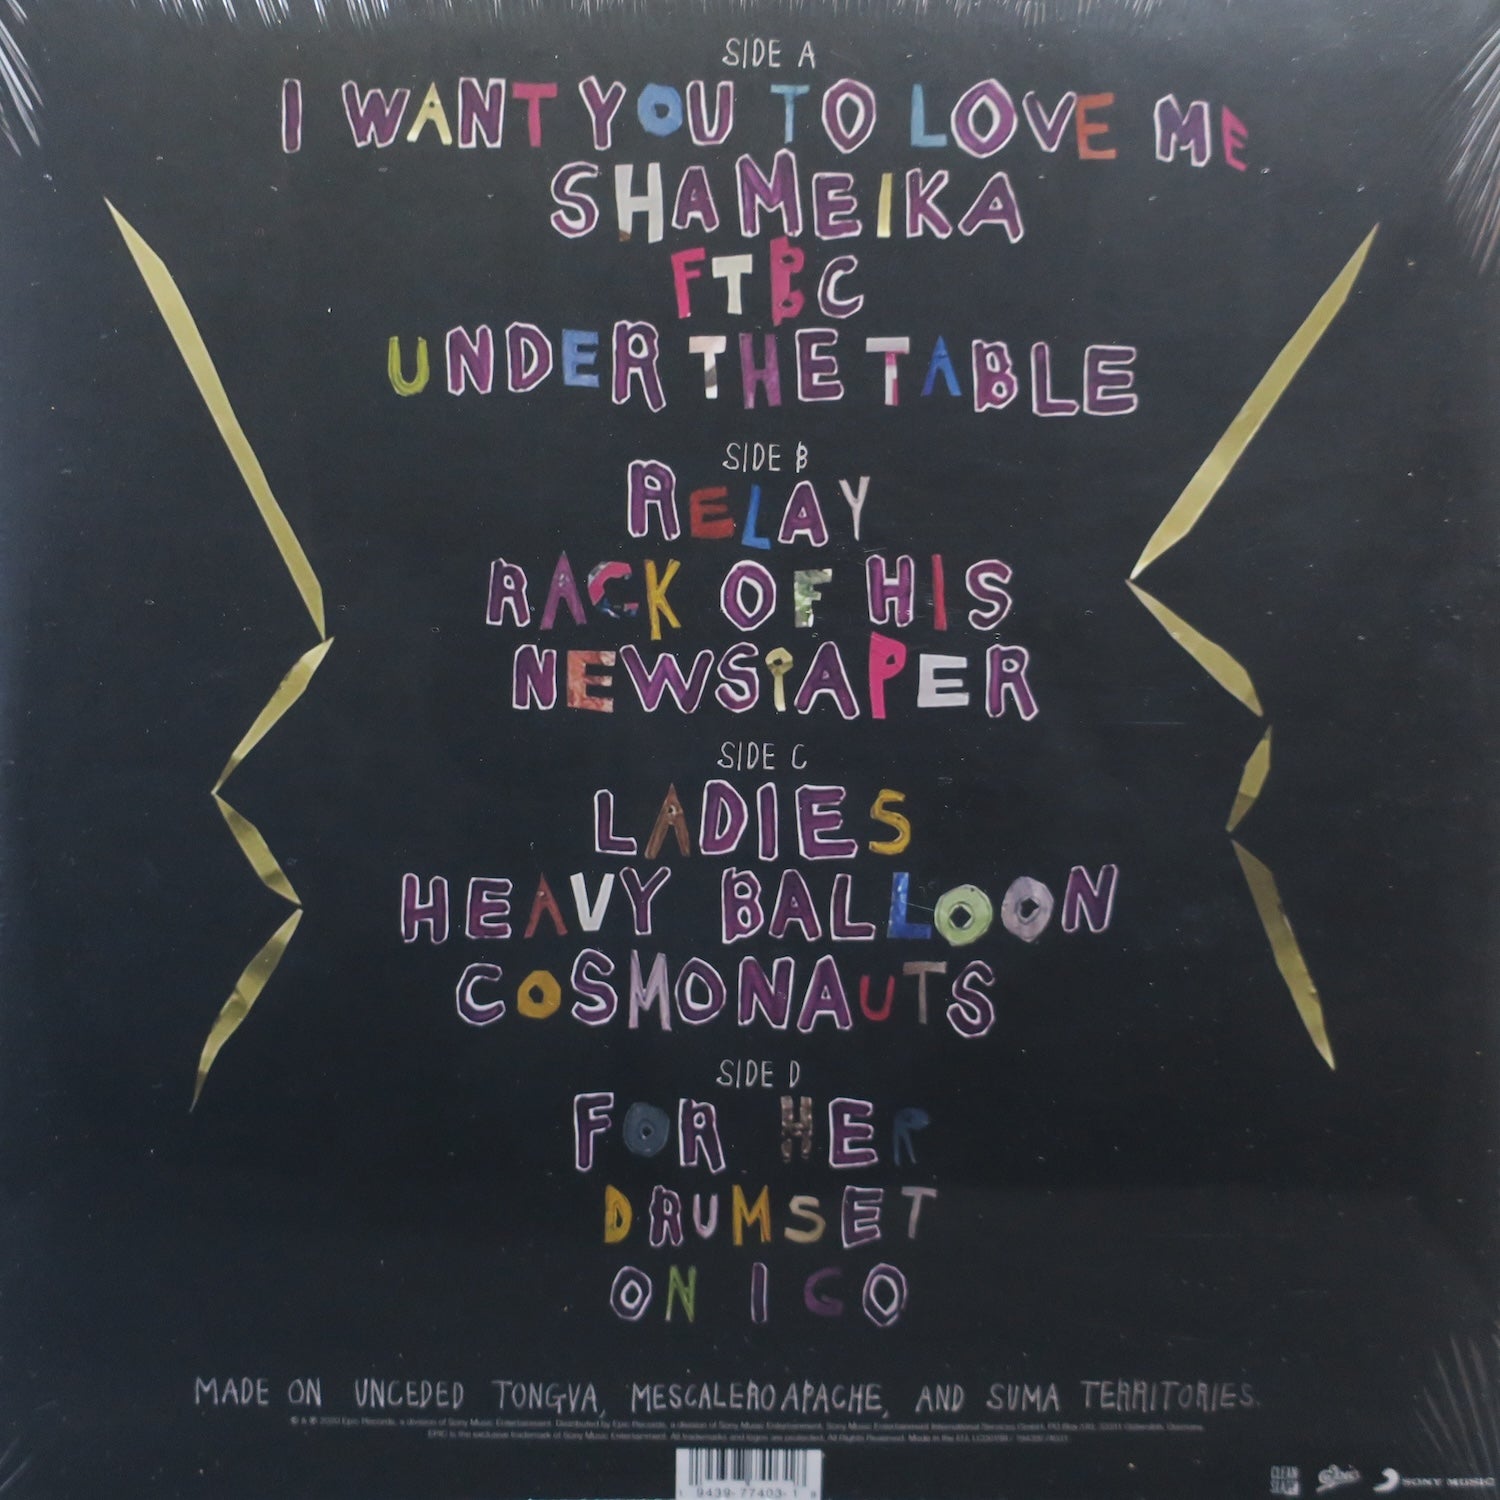 SIDE A
I WANT YOU TO LOVE ME
SHAMEIKA
FTBC
UNDER THE TABLE
SIDE B
RELAY
RACK OF HIS
NEWSPAPER
SIDE C
LADIES
HEAVY BALLOON
COSMONAUTS
SIDE D
FOR HER
DRUMSET
ON I GO
MADE ON UNCEDED TONGVA, MESCALERO APACHE, AND SUMA TERRITORIES.
℗ & © 2020 Epic Records, a division of Sony Music Entertainment. Distributed by Epic Records, a division of Sony Music Entertainment. Sony Music Entertainment International Services GmbH,
EPIC is the exclusive trademark of Sony Music Entertainment. All trademarks and logos are protected. All Rights Reserved. Made in the EU.
CLEAN
SLATE
Epic
SONY MUSIC
1 9439-77403-1 8